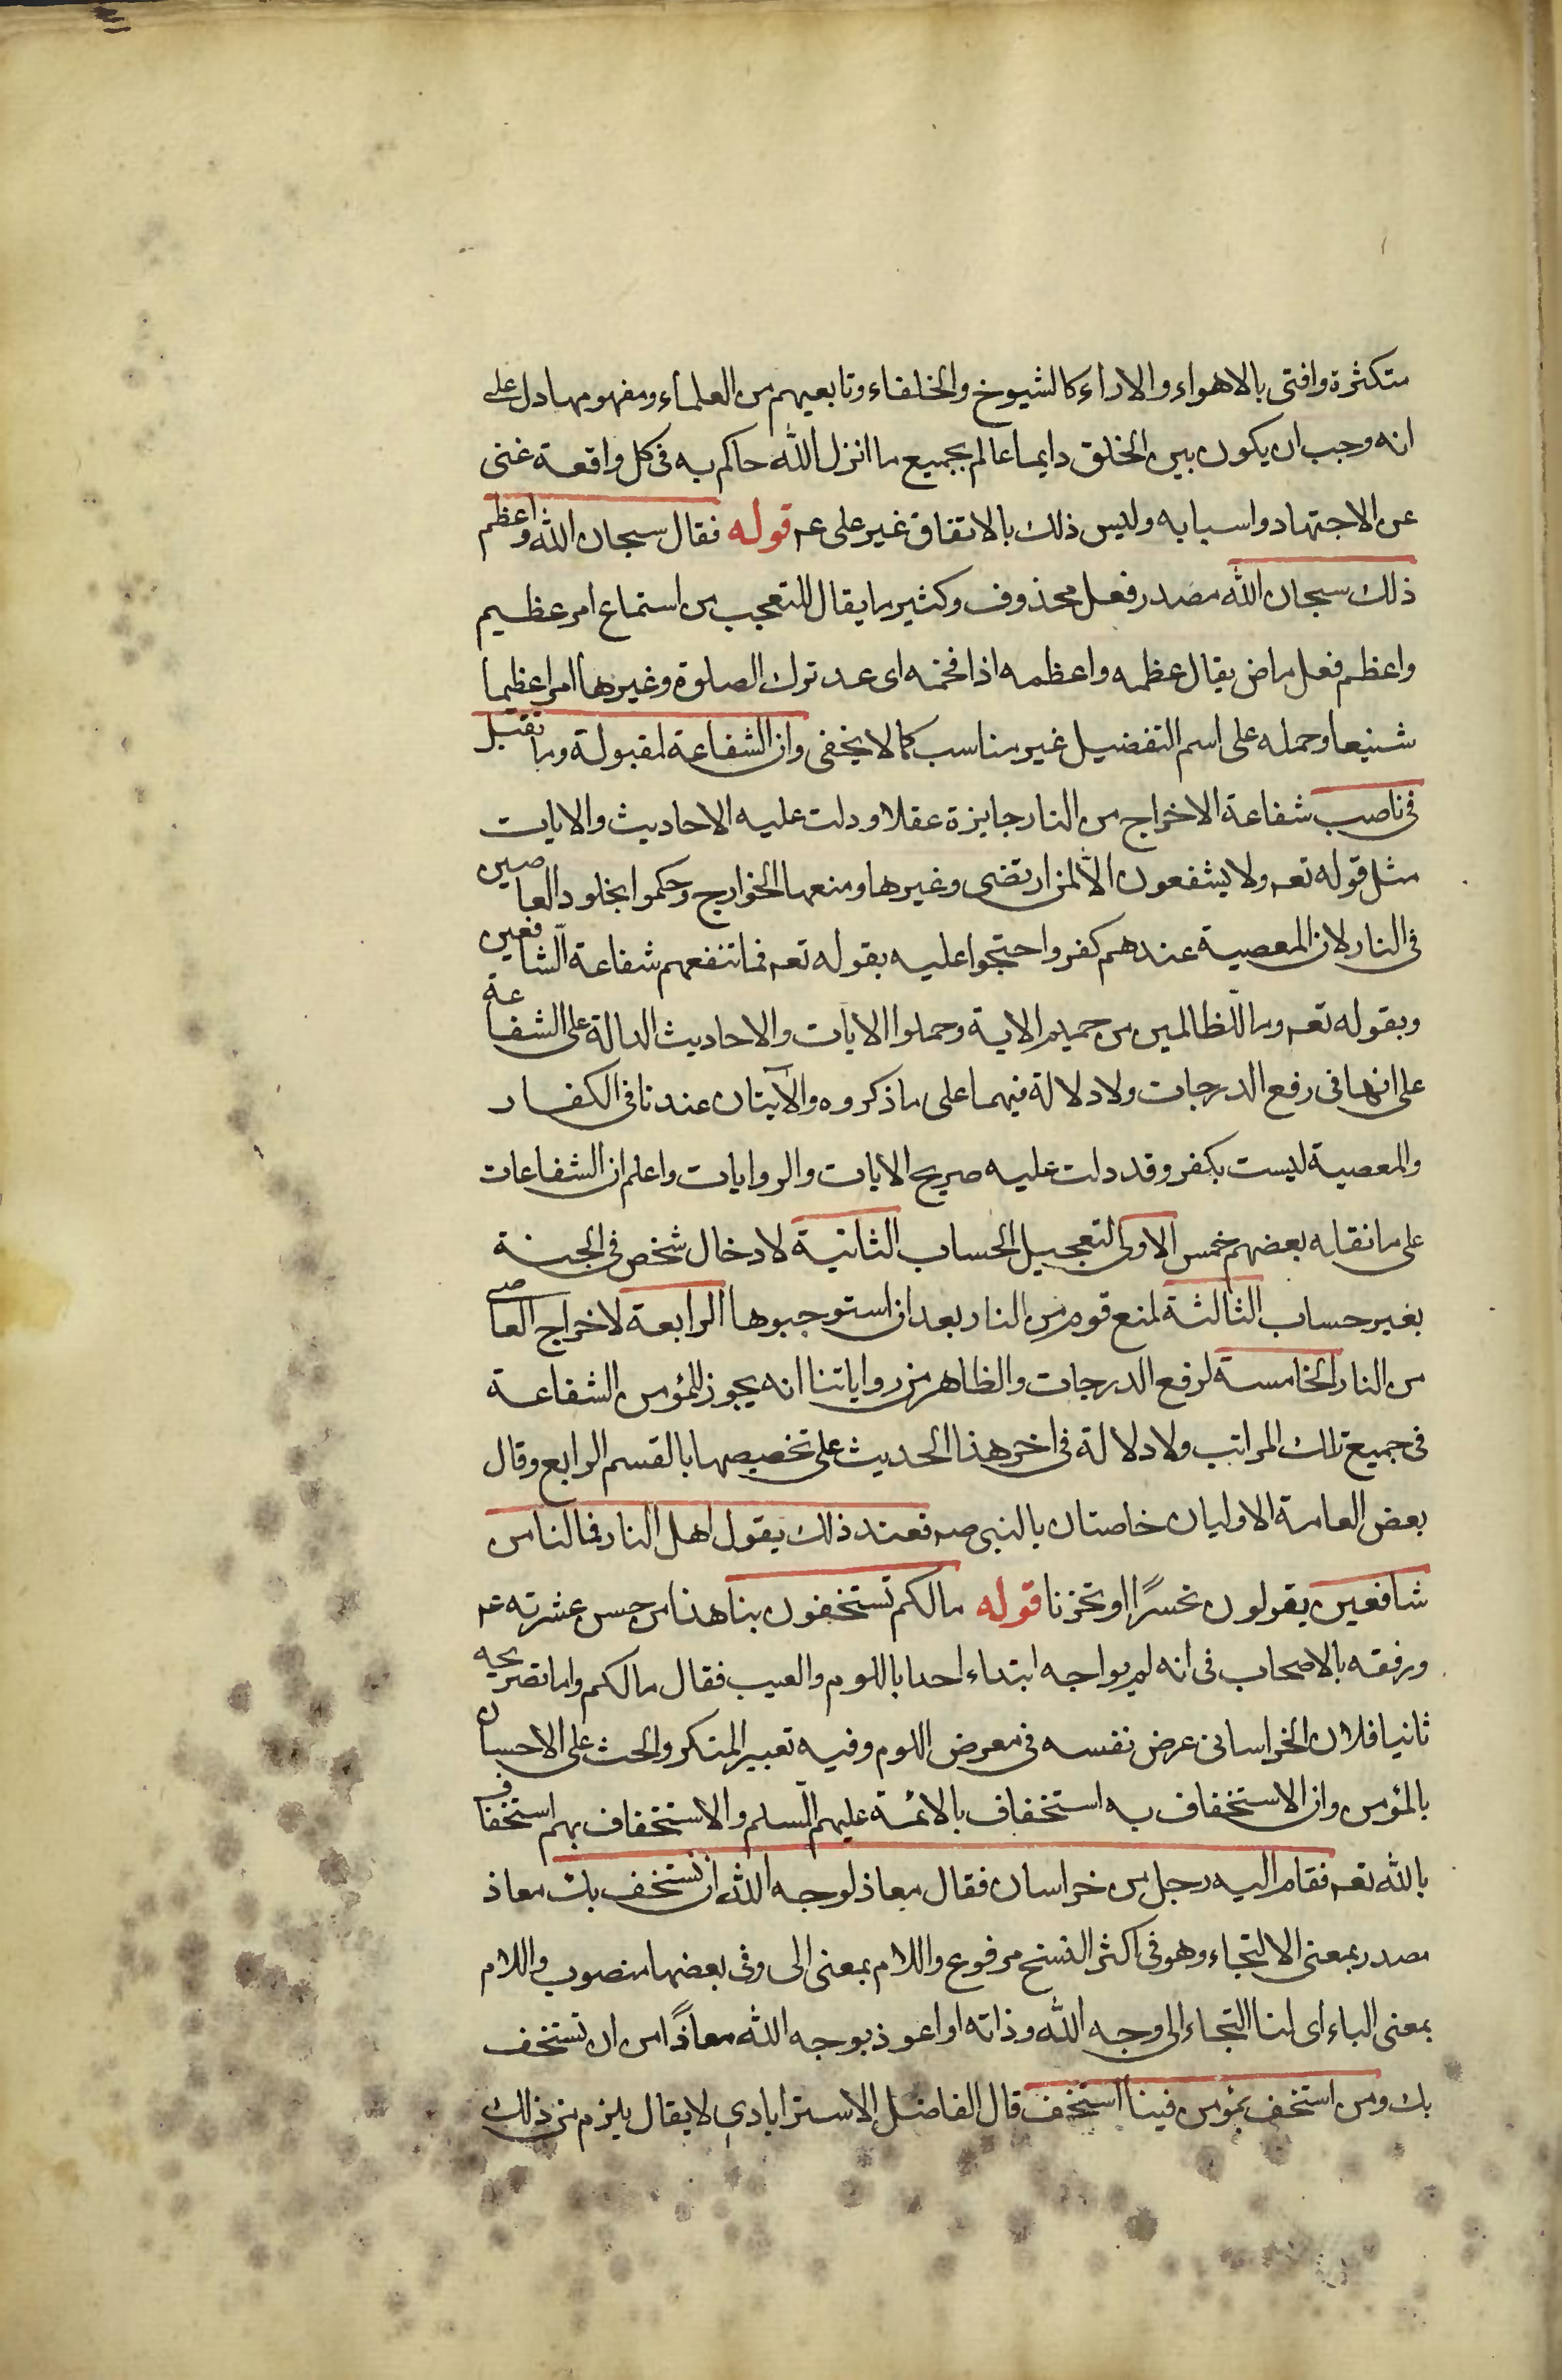 متكثرة وافتى بالاهواء والاراء كالشيوخ والخلفاء وتابعيهم من العلماء ومفهومها دل على
انه وجب ان يكون بين الخلق دايما عالم بجميع ما انزل الله حاكم به فى كل واقعة غنى
عن الاجتهاد واسبابه وليس ذلك بالاتفاق غير على عم قوله فقال سبحان الله واعظم
ذلك سبحان الله مصدر فعل محذوف وكثير ما يقال للتعجب من استماع امر عظيم
واعظم فعل ماض يقال عظمه واعظمه اذا فخمه اى عد ترك الصلوة وغيرها امرا عظيما
شنيعا وحمله على اسم التفضيل غير مناسب كما لا يخفى وان الشفاعة لمقبولة وما تقبل
فى ناصب شفاعة الاخراج من النار جايزة عقلا ودلت عليه الاحاديث والايات
مثل قوله تعم ولا يشفعون الّا لمن ارتضى وغيرها ومنعها الخوارج وحكموا بخلود العاصين
فى النار لان المعصية عندهم كفر واحتجوا عليه بقوله تعم فما تنفعهم شفاعة الشّافعين
وبقوله تعم وما للظالمين من حميم الاية وحملوا الايات والاحاديث الدالة على الشفاعة
على انها فى رفع الدرجات ولا دلالة فيهما على ما ذكروه والآيتان عندنا فى الكفار
والمعصية ليست بكفر وقد دلت عليه صريح الايات والروايات واعلم ان الشفاعات
على ما نقله بعضهم خمس الاولى لتعجيل الحساب الثانية لادخال شخص فى الجنة
بغير حساب الثالثة لمنع قوم من النار بعد ان استوجبوها الرابعة لاخراج العاصى
من النار الخامسة لرفع الدرجات والظاهر من رواياتنا انه يجوز للمؤمن الشفاعة
فى جميع تلك المراتب ولا دلالة فى اخر هذا الحديث على تخصيصها بالقسم الرابع وقال
بعض العامة الاوليان خاصتان بالنبى صم فعند ذلك يقول اهل النار فما لنا من
شافعين يقولون تحسرًا او تحزنا قوله ما لكم تستخفون بنا هذا من حسن عشرته عم
ورفقه بالاصحاب فى انه لم يواجه ابتداء احدا باللوم والعيب فقال ما لكم واما تصريحه
ثانيا فلان الخراسانى عرض نفسه فى معرض اللوم وفيه تعيير المتكبر والحث على الاحسان
بالمؤمن وان الاستخفاف به استخفاف بالائمة عليهم السّلم والاستخفاف بهم استخفاف
بالله تعم فقام اليه رجل من خراسان فقال معاذ لوجه الله ان نستخف بك معاذ
مصدر بمعنى الالتجاء وهو فى اكثر النسخ مرفوع واللام بمعنى الى وفى بعضها منصوب واللام
بمعنى الباء اى لنا التجاء الى وجه الله وذاته او اعوذ بوجه الله معاذًا من ان نستخف
بك ومن استخف بمؤمن فبنا استخف قال الفاضل الاسترابادى لا يقال يلزم من ذلك